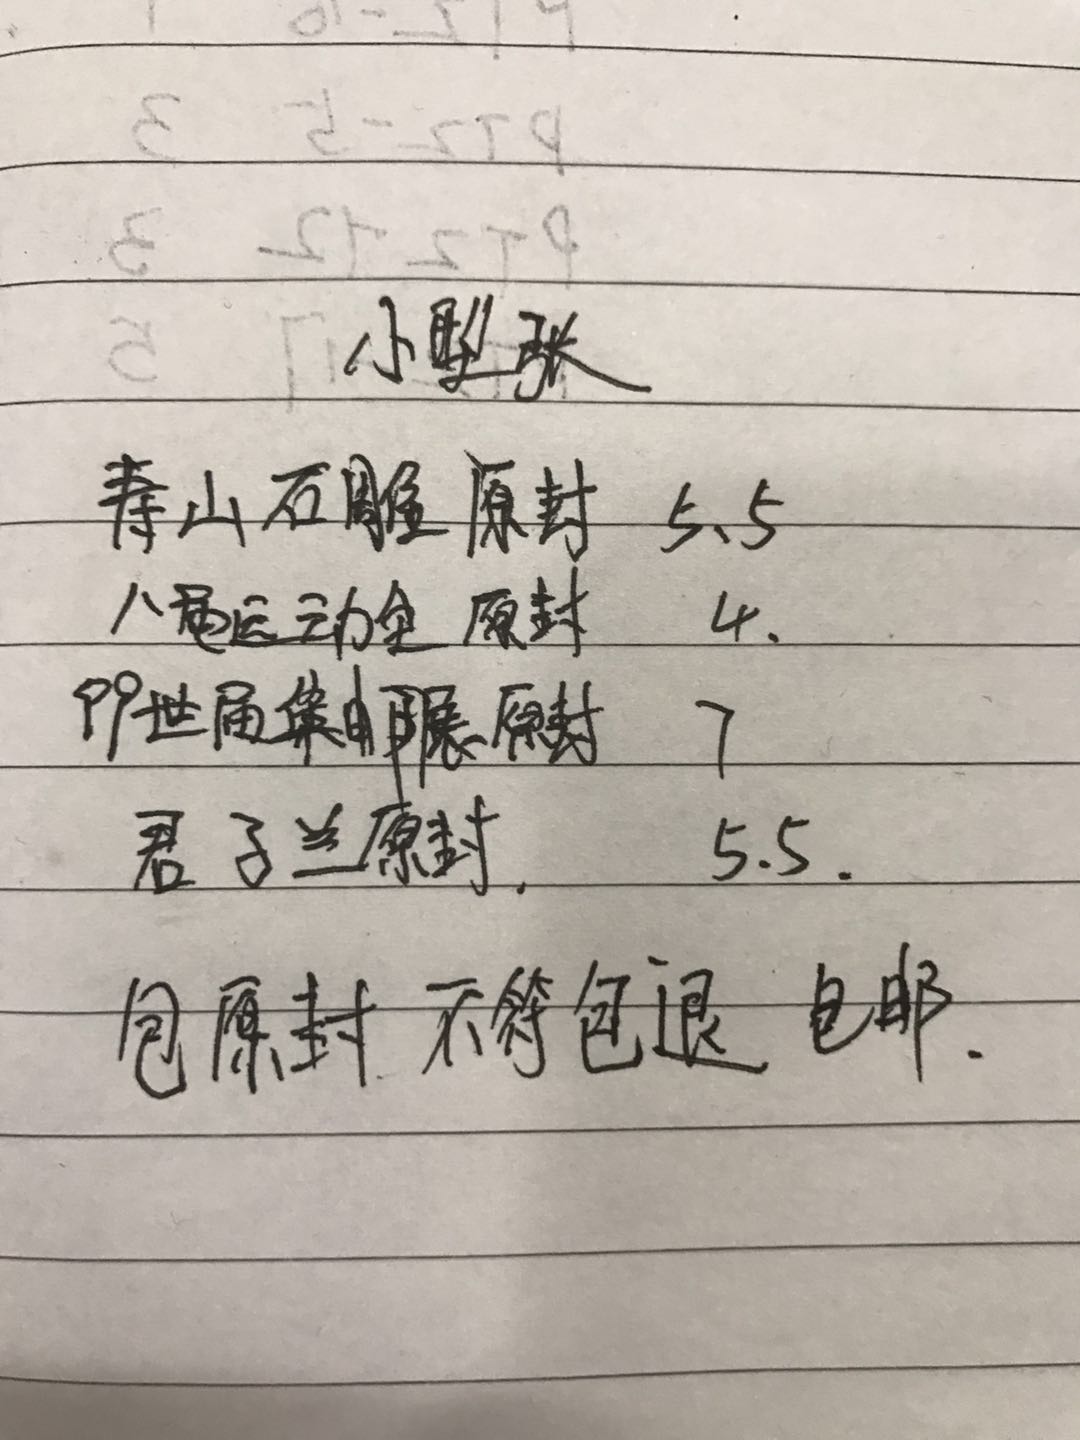 小型张
寿山石雕原封 5.5
八届运动会 原封 4.
99世届集邮展原封 7
君子兰原封. 5.5.
包原封 不符包退 包邮.